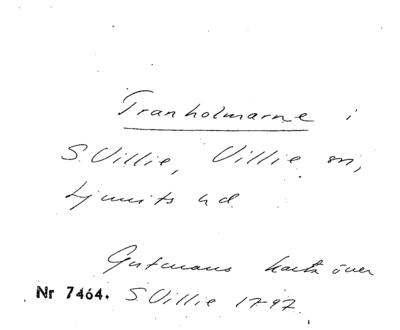 Tranholmarne i
S. Villie, Villie sn,
Ljunits hd.
Gutmans karta över
Nr 7464. S Villie 1797.